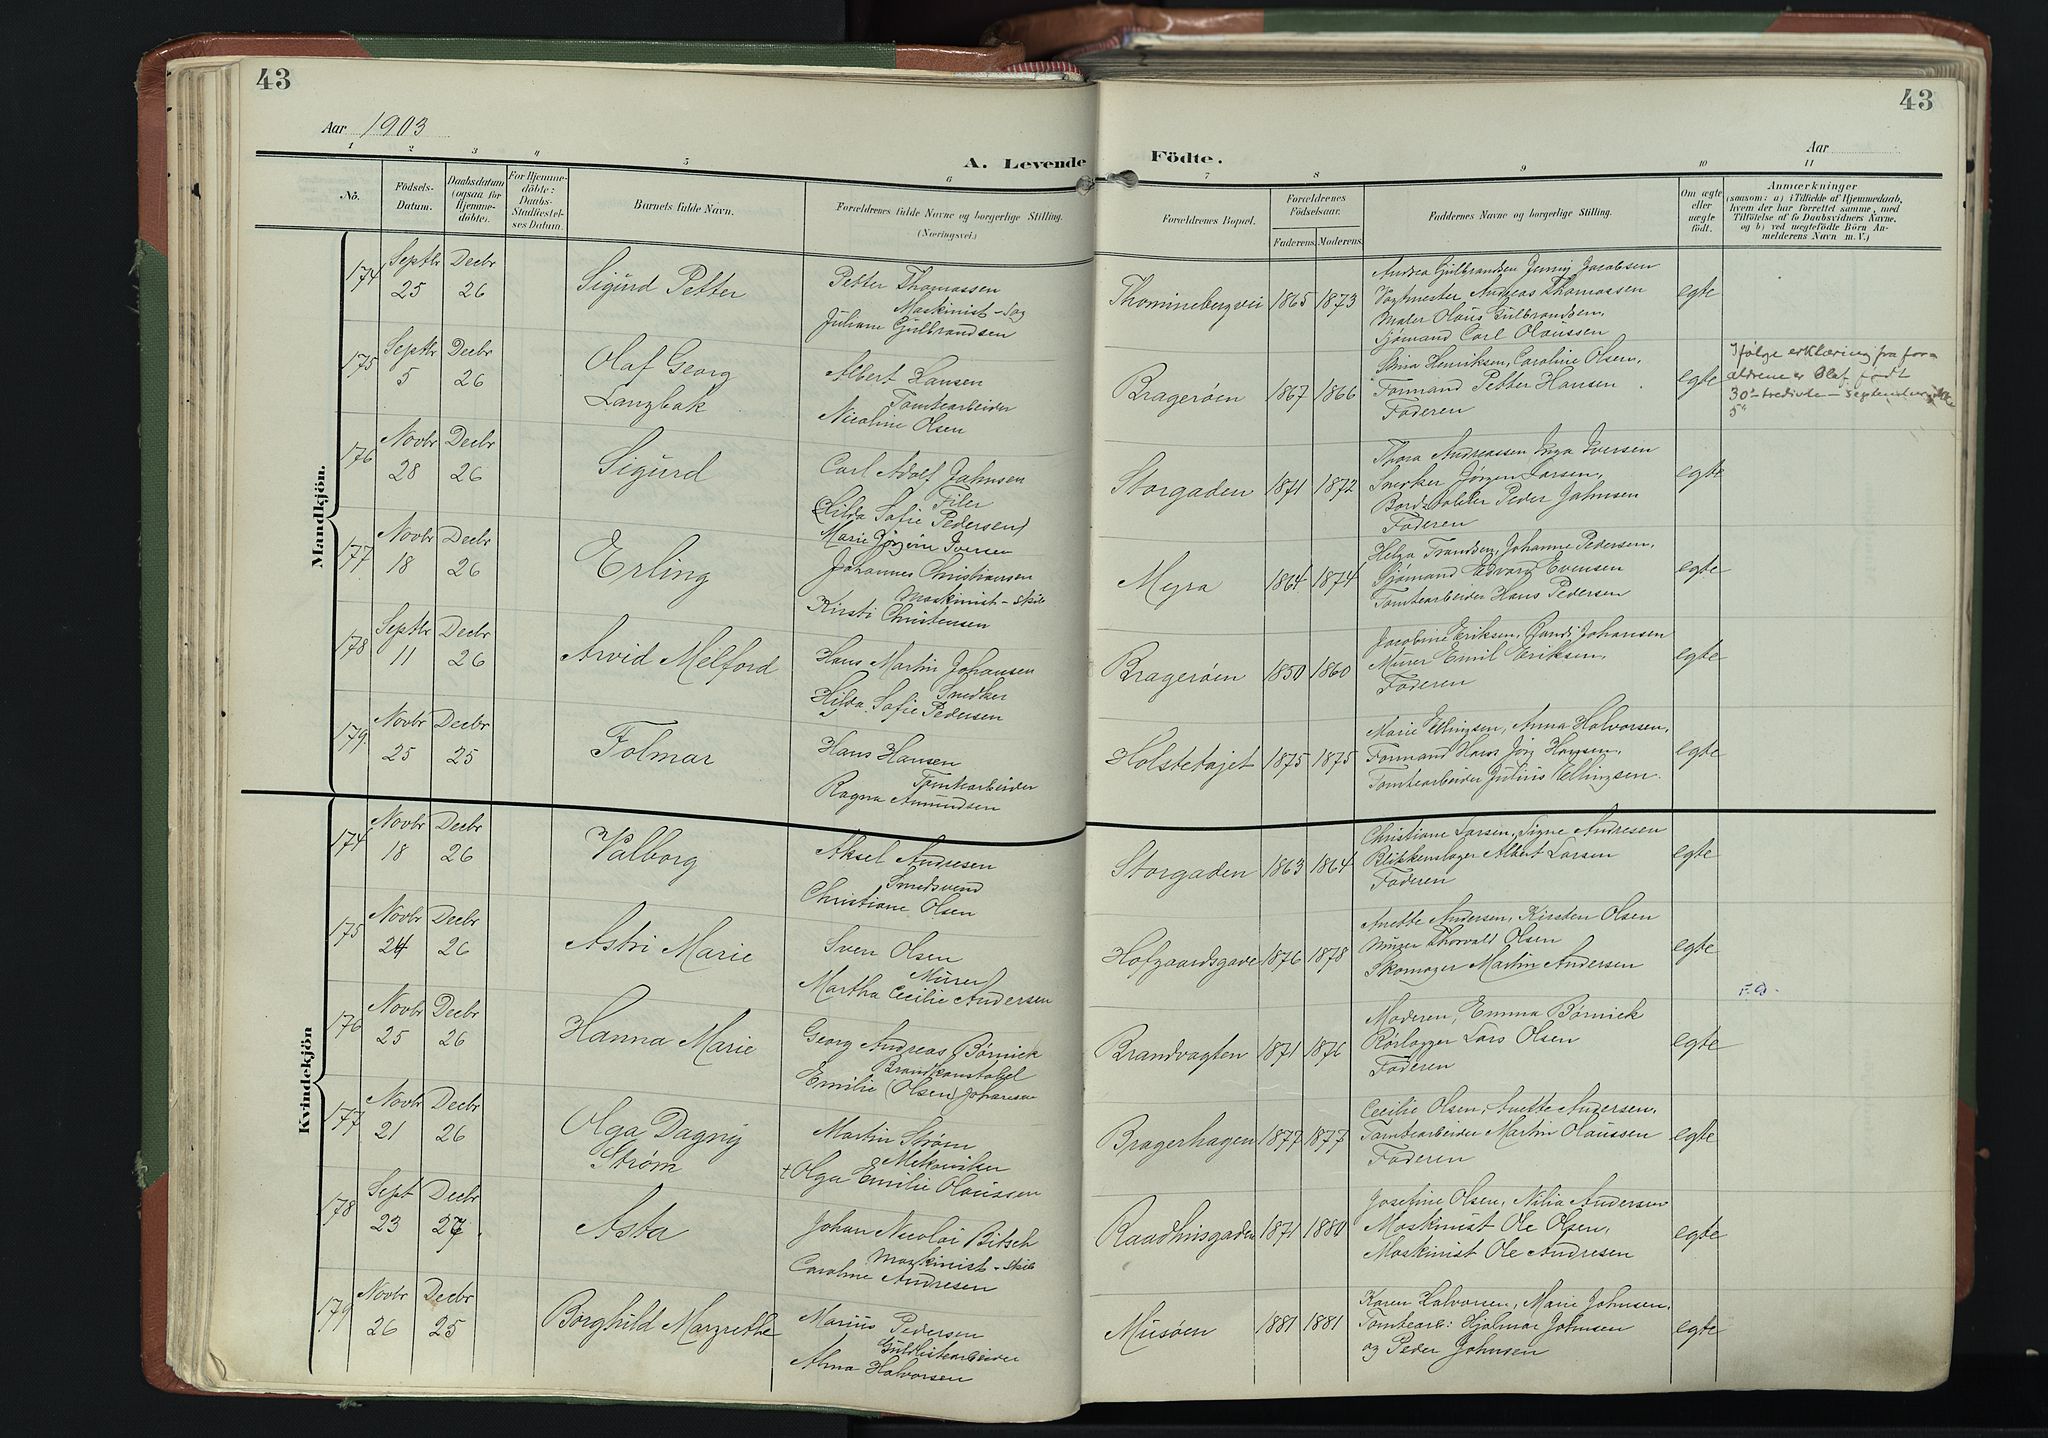 43
43
Aar 1903
A. Levende Födte.
Aar
1 2 3 4 5 6 7 8 9 10 11
No.
Födsels-Datum.
Daabsdatum (ogsaa for Hjemmedöbte).
For Hjemmedöbte: Daabs-Stadfæstelses Datum.
Barnets fulde Navn.
Forældrenes fulde Navne og borgerlige Stilling.
(Næringsvei.)
Forældrenes Bopæl.
Forældrenes Födselsaar.
Faderens. Moderens.
Faddernes Navne og borgerlige Stilling.
Om ægte eller uægte födt.
Anmærkninger
(saasom: a) i Tilfælde af Hjemmedaab, hvem der har forrettet samme, med Tilföielse af to Daabsvidners Navne, og b) ved uægtefödte Börn Anmelderens Navn m. V.)
Mandkjön.
174 Septbr 25 Decbr 26
Sigurd Petter
Petter Thomassen
Maskinist - Sag
Juliane Gulbrandsen
Thominebergvei 1865 1873
Andrea Gulbrandsen Jenny Jacobsen
Vagtmester Andreas Thomassen
Maler Olaus Gulbrandsen,
Sjømand Carl Olaussen
egte
175 Septbr 5 Decbr 26
Olaf Georg
Langbak
Albert Hansen
Tomtearbeider
Nicoline Olsen
Bragerøen 1867 1866
Stina Henriksen, Caroline Olsen,
Formand Petter Hansen
Faderen
egte
Ifølge erklæring fra for-
ældrene er Olaf født
30 - tredivte - september ikke
5"
176 Novbr 28 Decbr 26
Sigurd
Carl Adolf Jahnsen
Filer
(Hilda Sofie Pedersen)
Marie Jørgine Iversen
Storgaden 1871 1872
Thora Andreassen Inga Iversen
Snekker Jørgen Larsen,
Peder Jahnsen
Faderen
egte
177 Novbr 18 Decbr 26
Erling
Johannes Christiansen
Maskinist - Skib
Kirsti Christensen
Myra 1864 1874
Helga Frandsen, Johanne Pedersen,
Sjømand Edvard Evensen
Tomtearbeider Hans Pedersen
egte
178 Septbr 11 Decbr 26
Arvid Melford
Hans Martin Johansen
Snedker
Hilda Sofie Pedersen
Bragerøen 1850 1860
Jacobine Eriksen, Randi Johansen
Murer Emil Eriksen,
Faderen
egte
179. Novbr 25 Decbr 25
Folmar
Hans Hansen
Tomtearbeider
Ragna Amundsen
Holstetøjet 1875 1875
Marie Ellingsen, Anna Halvorsen,
Formand Hans Jørg Hansen,
Tomtearbeider Julius Ellingsen.
egte
Kvindekjön
174 Novbr 18 Decbr 26
Valborg
Aksel Andresen
Smedsvend
Christiane Olsen
Storgaden 1863 1864
Christiane Larsen, Signe Andresen
Blikkenslager Albert Larsen
Faderen
egte
175 Novbr 24 Decbr 26
Astri Marie
Sven Olsen
Murer
Martha Cecilie Andersen
Hofgaardsgave 1876 1878
Anette Andersen, Kirsten Olsen
Murer Thorvald Olsen
Skomager Martin Andersen
egte
176 Novbr 25 Decbr 26
Hanna Marie
Georg Andreas Børnick
Brandkonstabel
Emilie (Olsen) Johansen
Brandvagten 1871 1876
Moderen, Emma Børnick
Rørlægger Lars Olsen
Faderen
egte
F.D.
177 Novbr 21 Decbr 26
Olga Dagny
Strøm
Martin Strøm
Mekaniker
+ Olga Emilie Olaussen
Bragerhagen 1877 1877
Cecilie Olsen, Anette Andersen,
Tomtearbeider Martin Olaussen
Faderen
egte
178 Sept 23 Decbr 27
Asta
Johan Nicolai Bitsch
Maskinist - Skib
Caroline Andresen
Raadhusgaden 1871 1880
Josefine Olsen, Nilia Andersen
Maskinist Ole Olsen,
Maskinist Ole Andresen
egte
179 Novbr 26 Decbr 25
Borghild Margrethe
Marius Pedersen
Guldlistearbeider
Alma Halvorsen
Musøen 1881 1881
Karen Halvorsen, Marie Johnsen,
Tomtearb: Hjalmar Johnsen
og Peder Johnsen
egte